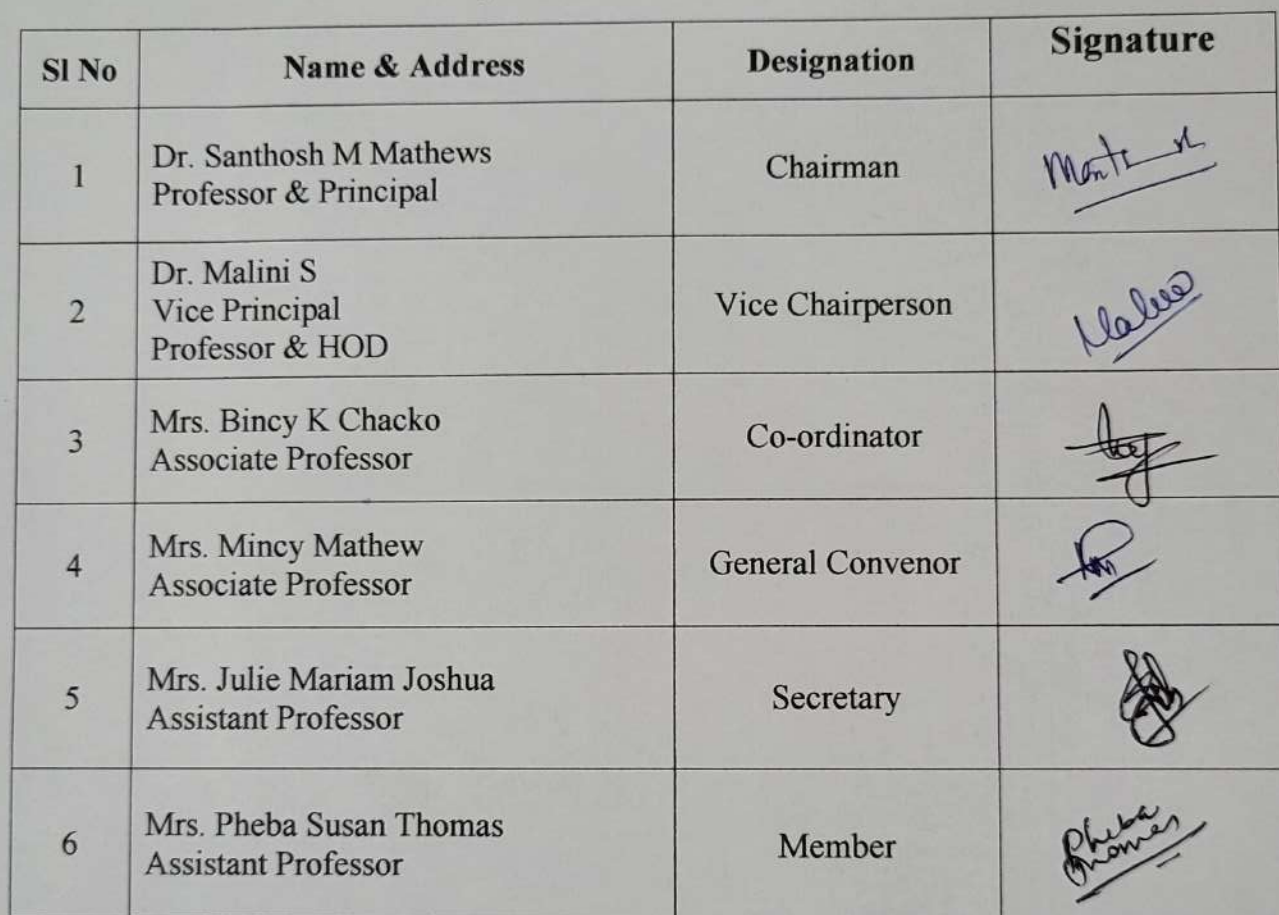 Sl No Name & Address Designation Signature
1
Dr. Santhosh M Mathews
Professor & Principal
Chairman
2
Dr. Malini S
Vice Principal
Professor & HOD
Vice Chairperson
3
Mrs. Bincy K Chacko
Associate Professor
Co-ordinator
4
Mrs. Mincy Mathew
Associate Professor
General Convenor
5
Mrs. Julie Mariam Joshua
Assistant Professor
Secretary
6
Mrs. Pheba Susan Thomas
Assistant Professor
Member
Pheba
Thomas